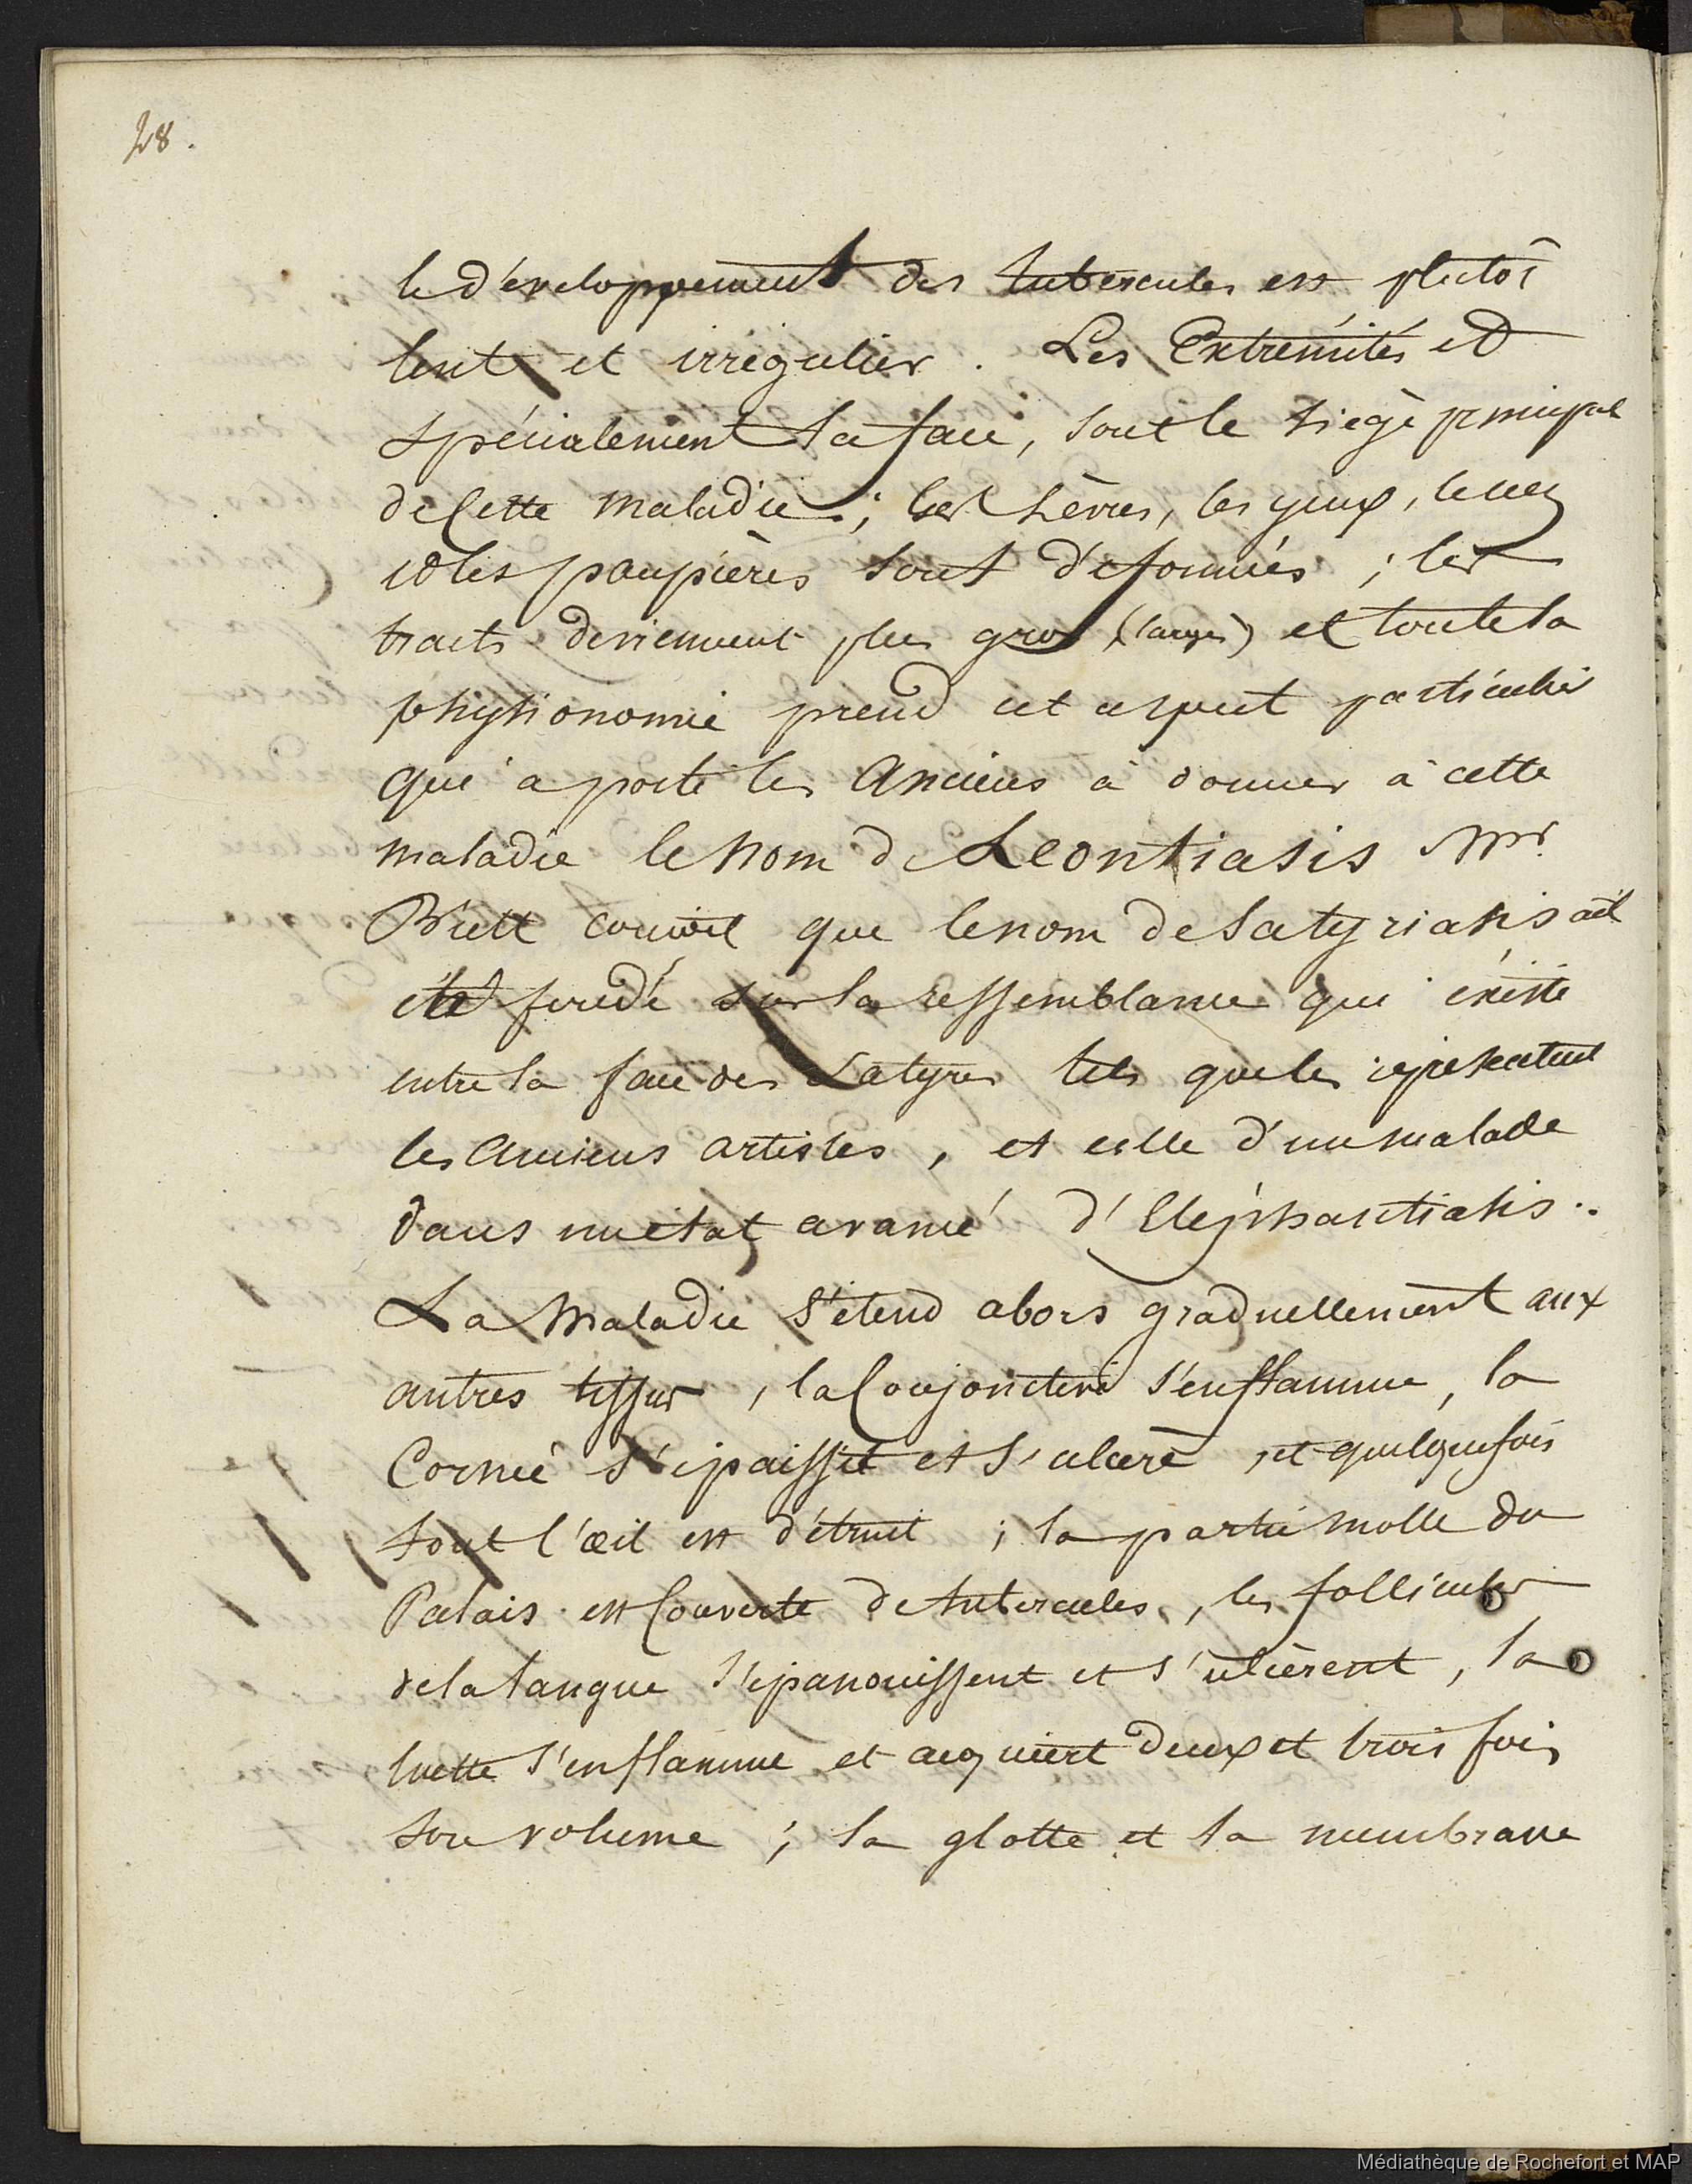 28.
le développement des tubercules est plutôt
lent et irrégulier. Les Extrémités et
spécialement la face, sont le siège principal
de cette maladie; les lèvres, les yeux, le nez
et les paupières sont déformées; les
traits deviennent plus gros (larges) et toute la
physionomie prend cet aspect particulier
qui a porté les Anciens à donner à cette
maladie le nom de Leontiasis Mr.
Brett conçoit que le nom de Satyriasis ait
été fondé sur la ressemblance qui existe
entre la face des Satyres tels que les représentent
les anciens artistes, et celle d'un malade
dans un état avancé d'Eléphantiasis..
La Maladie s'étend alors graduellement aux
autres tissus, la Conjonctive s'enflamme, la
Cornée s'épaissit et s'ulcère, et quelquefois
tout l'œil est détruit; la partie molle du
Palais est Couverte de tubercules, les follicules
de la langue s'épanouissent et s'ulcèrent, la
luette s'enflamme et acquiert deux et trois fois
son volume; la glotte et la membrane
Médiathèque de Rochefort et MAP